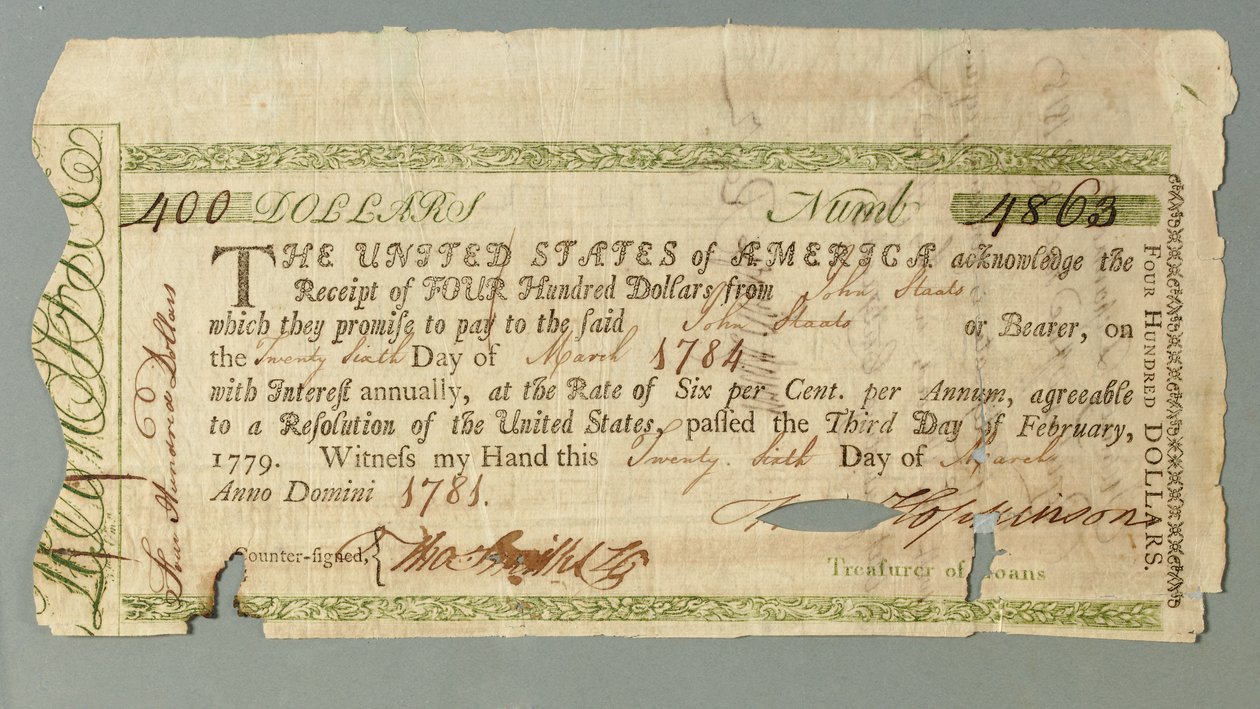 400 DOLLARS Numb 4863
THE UNITED STATES of AMERICA acknowledge the
Receipt of FOUR Hundred Dollars from John Staats
which they promiſe to pay to the ſaid John Staats or Bearer, on
the Twenty Sixth Day of March 1784
with Intereſt annually, at the Rate of Six per Cent. per Annum, agreeable
to a Reſolution of the United States, paſſed the Third Day of February,
1779. Witneſs my Hand this Twenty Sixth Day of March
Anno Domini 1781.
Hopkinson
Counter-ſigned,
Treaſurer of Loans
Four Hundred Dollars
FOUR HUNDRED DOLLARS.